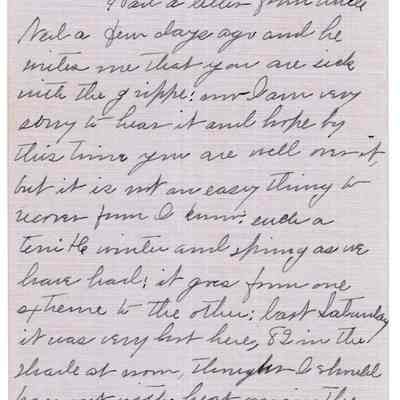 I had a letter from Uncle
Ned a few days ago and he
writes me that you are sick
with the grippe: now I am very
sorry to hear it and hope by
this time you are well over it,
but it is not an easy thing to
recover from I know. such a
terrible winter and spring as we
have had; it goes from one
extreme to the other; last Saturday
it was very hot here, 82 in the
shade at noon, though I should
the heat in the